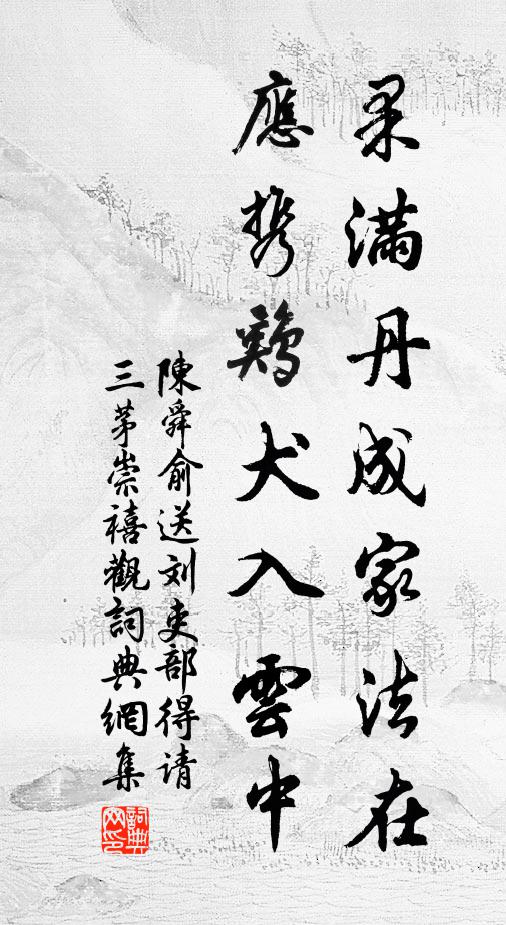 果满丹成家法在
應携鷄犬入雲中
陳舜俞送刘吏部得请
三茅崇禧觀詞典網集
詞典网印